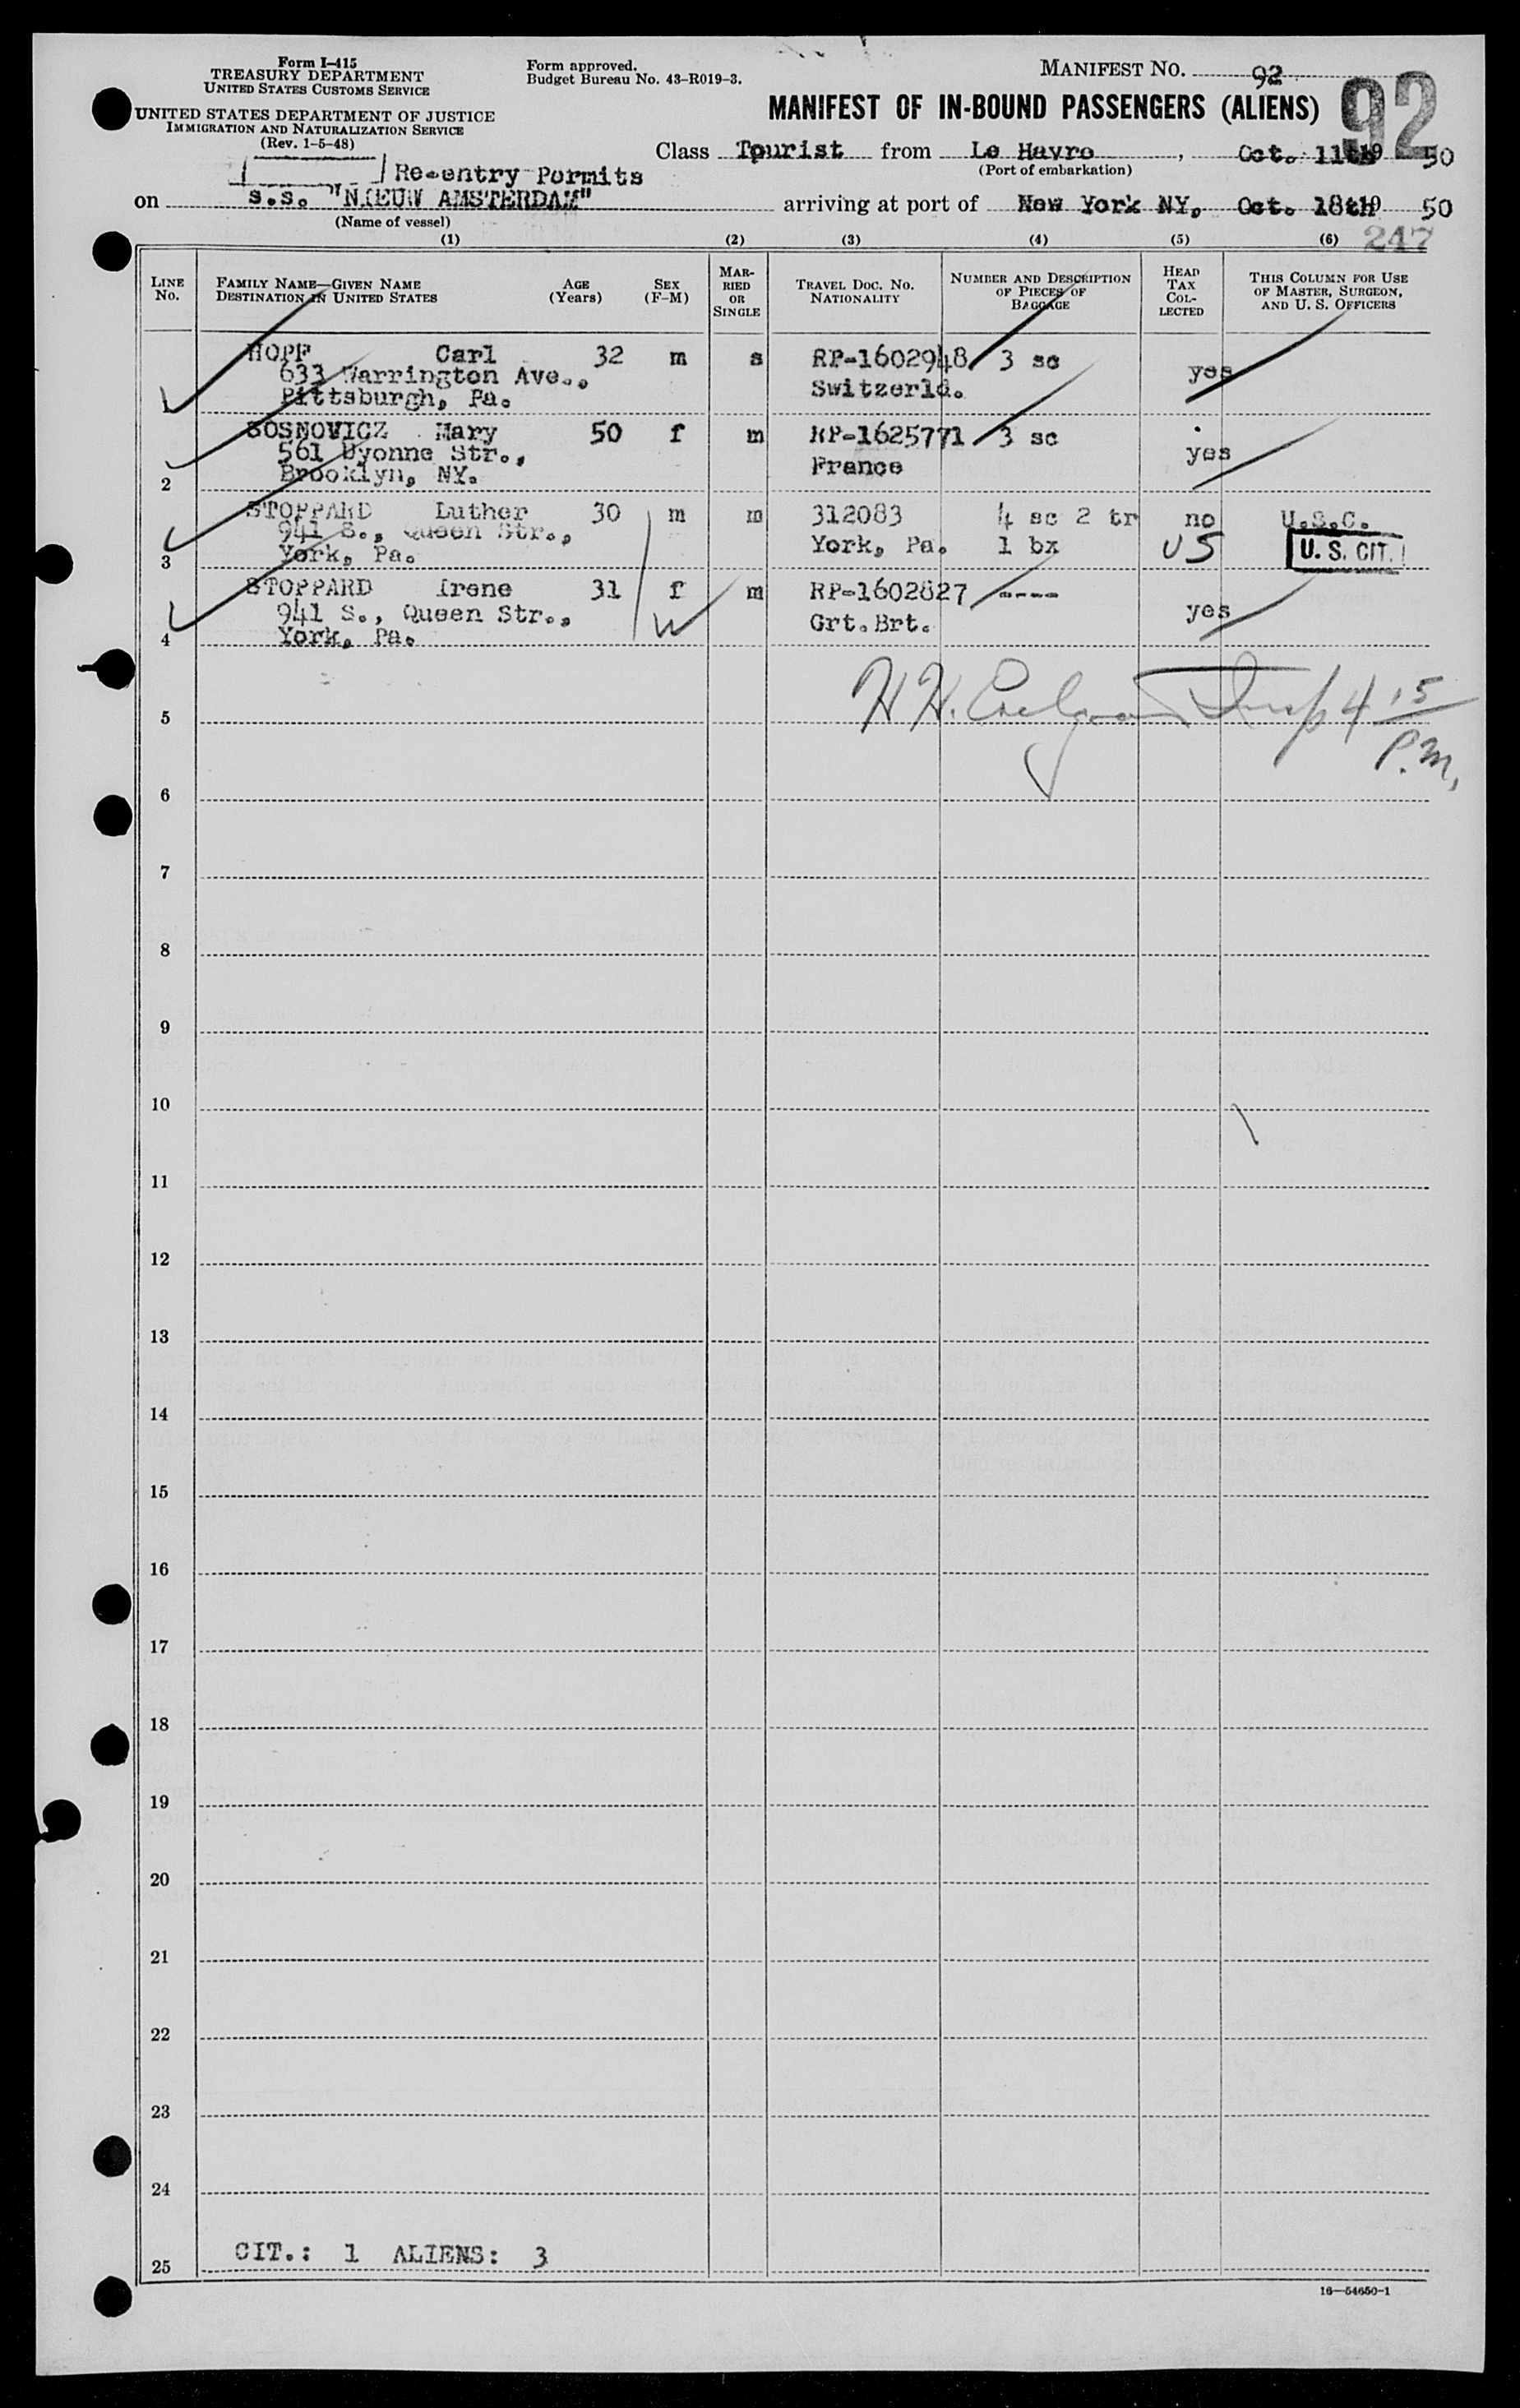 Form I-415
TREASURY DEPARTMENT
UNITED STATES CUSTOMS SERVICE
UNITED STATES DEPARTMENT OF JUSTICE
IMMIGRATION AND NATURALIZATION SERVICE
(Rev. 1-5-48)
Form approved.
Budget Bureau No. 43-R019-3.
MANIFEST NO. 92
92
MANIFEST OF IN-BOUND PASSENGERS (ALIENS)
Class Tourist from Le Havre, Oct. 11th 19 50
(Port of embarkation)
Re-entry Permits
on s.s. "NIEUW AMSTERDAM" arriving at port of New York NY, Oct. 18th 19 50
(Name of vessel)
247
(1) (2) (3) (4) (5) (6)
LINE No. FAMILY NAME—GIVEN NAME DESTINATION IN UNITED STATES AGE (Years) SEX (F-M) MARRIED OR SINGLE TRAVEL DOC. NO. NATIONALITY NUMBER AND DESCRIPTION OF PIECES OF BAGGAGE HEAD TAX COLLECTED THIS COLUMN FOR USE OF MASTER, SURGEON, AND U. S. OFFICERS
HOPF Carl 32 m s RP-1602948 3 sc
633 Warrington Ave., Switzerld. yes
Pittsburgh, Pa.
SOSNOVICZ Mary 50 f m RP-1625771 3 sc
561 Vyonne Str., France yes
2 Brooklyn, NY.
STOPPARD Luther 30 m m 312083 4 sc 2 tr no U.S.C.
941 S., Queen Str., York, Pa. 1 bx US U. S. CIT.
3 York, Pa.
STOPPARD Irene 31 f m RP-1602827 ----
941 S., Queen Str., W Grt.Brt. yes
4 York, Pa.
5 H. H. Insp 4 15
P.M.
6
7
8
9
10
11
12
13
14
15
16
17
18
19
20
21
22
23
24
25 CIT.: 1 ALIENS: 3
16—54650-1